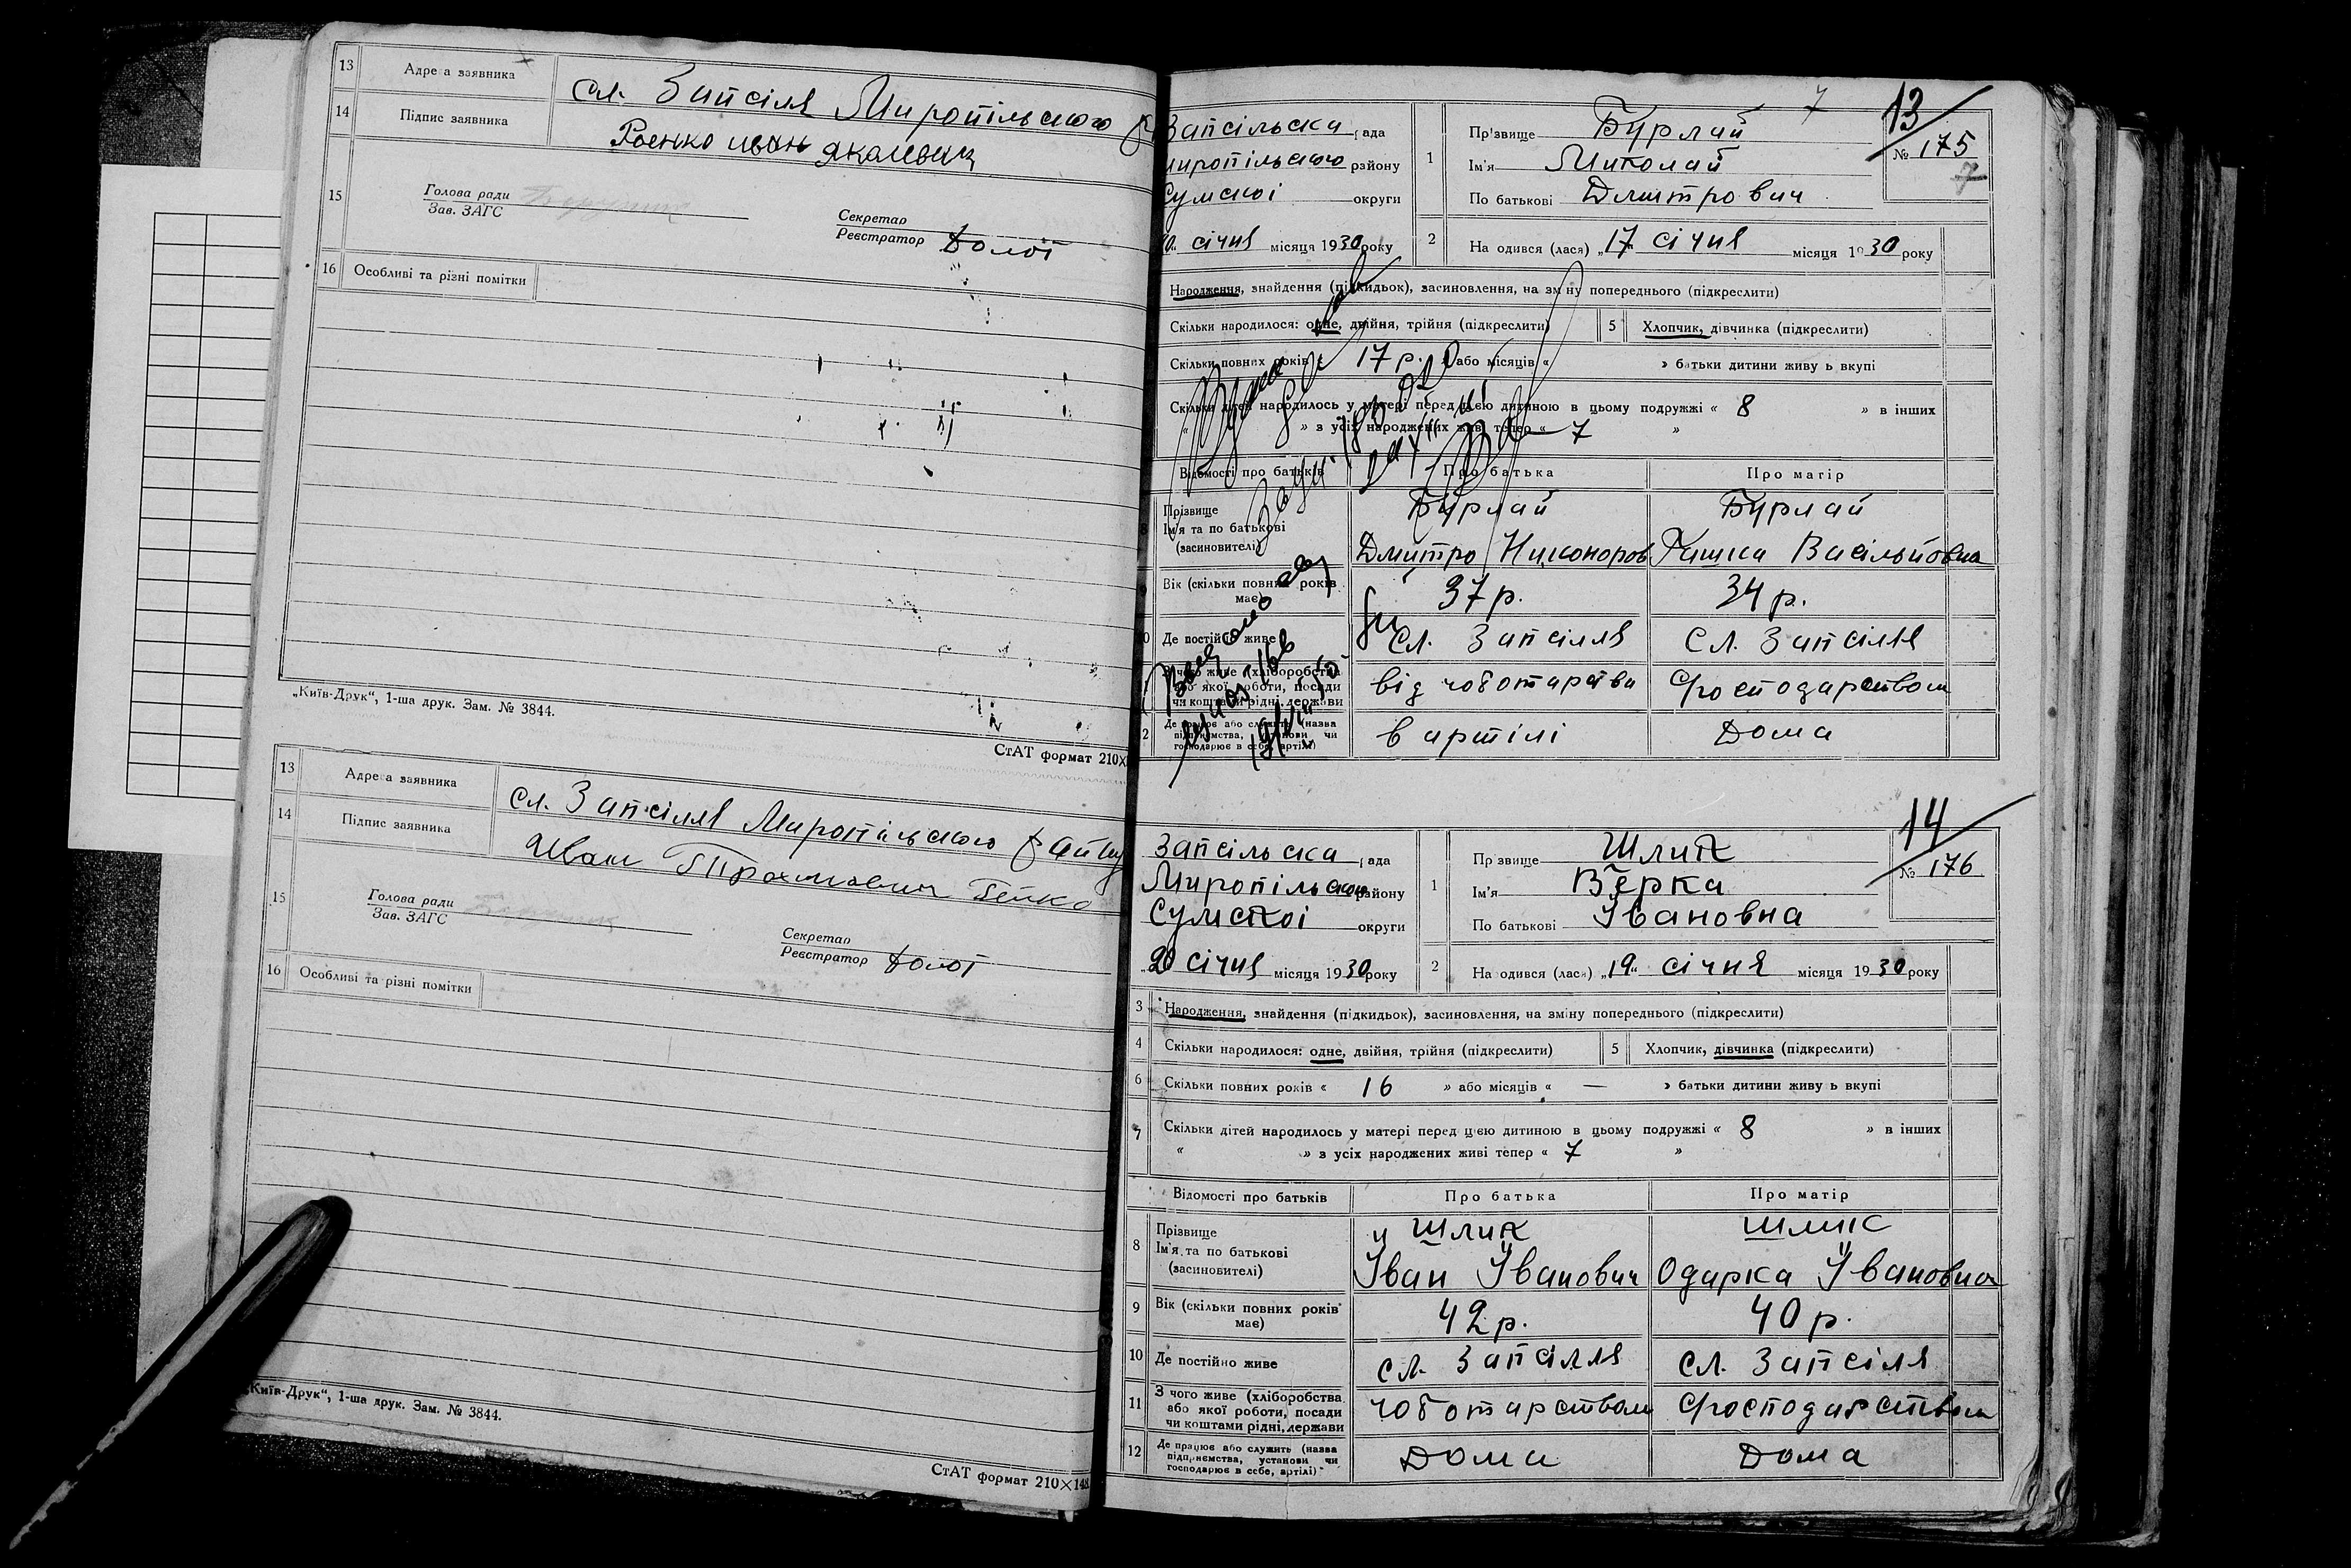 13 Адреса заявника сл. Запсіля Миропільського
14 Підпис заявника Роенко
15 Голова ради
Зав. ЗАГС
Секретар
Реєстратор
16 Особливі та різні помітки
„Київ-Друк“, 1-ша друк. Зам. № 3844.
СтАТ формат 210×
13 Адреса заявника сл. Запсілля Миропільського
14 Підпис заявника Иван
15 Голова ради
Зав. ЗАГС
Секретар
Реєстратор
16 Особливі та різні помітки
„Київ-Друк“, 1-ша друк. Зам. № 3844.
СтАТ формат 210×148
7
13
Запсільска рада
Миропільського району
Сумскої округи
січня місяця 1930 року
1 Прізвище Бурлай
Ім'я Миколай
По батькові Дмитрович
№ 175
7
2 Народився (лася) „17 січня місяця 1930 року
Народження, знайдення (підкидьок), засиновлення, на зміну попереднього (підкреслити)
Скільки народилося: одне, двійня, трійня (підкреслити) 5 Хлопчик, дівчинка (підкреслити)
Скільки повних років « 17 р. » або місяців « » батьки дитини живуть вкупі
Скільки дітей народилось у матері перед цією дитиною в цьому подружжі « 8 » в інших
« » з усіх народжених живі тепер « 7 »
Відомості про батьків Про батька Про матір
8 Прізвище Бурлай Бурлай
Ім'я та по батькові Дмитро Никоноров Васільовна
(засиновителі)
9 Вік (скільки повних років має) 37 р. 34 р.
10 Де постійно живе сл. Запсілля сл. Запсілля
11 З чого живе (хліборобства або якої роботи, посади чи коштами рідні, держави від чоботарства Господарством
12 Де працює або служить (назва підприємства, установи чи господарює в себе, артілі) в артілі Дома
14
Запсільска рада
Миропільського району
Сумскої округи
„20 січня місяця 1930 року
1 Прізвище Шлик
Ім'я Верка
По батькові Івановна
№ 176
2 Народився (лася) „19“ січня місяця 1930 року
3 Народження, знайдення (підкидьок), засиновлення, на зміну попереднього (підкреслити)
4 Скільки народилося: одне, двійня, трійня (підкреслити) 5 Хлопчик, дівчинка (підкреслити)
6 Скільки повних років « 16 » або місяців « — » батьки дитини живуть вкупі
7 Скільки дітей народилось у матері перед цією дитиною в цьому подружжі « 8 » в інших
« » з усіх народжених живі тепер « 7 »
Відомості про батьків Про батька Про матір
8 Прізвище Шлик Шлик
Ім'я та по батькові Іван Іванович Одарка Івановна
(засиновителі)
9 Вік (скільки повних років має) 42 р. 40 р.
10 Де постійно живе сл. Запсілля сл. Запсіля
11 З чого живе (хліборобства або якої роботи, посади чи коштами рідні, держави чоботарством Господарством
12 Де працює або служить (назва підприємства, установи чи господарює в себе, артілі) Дома Дома